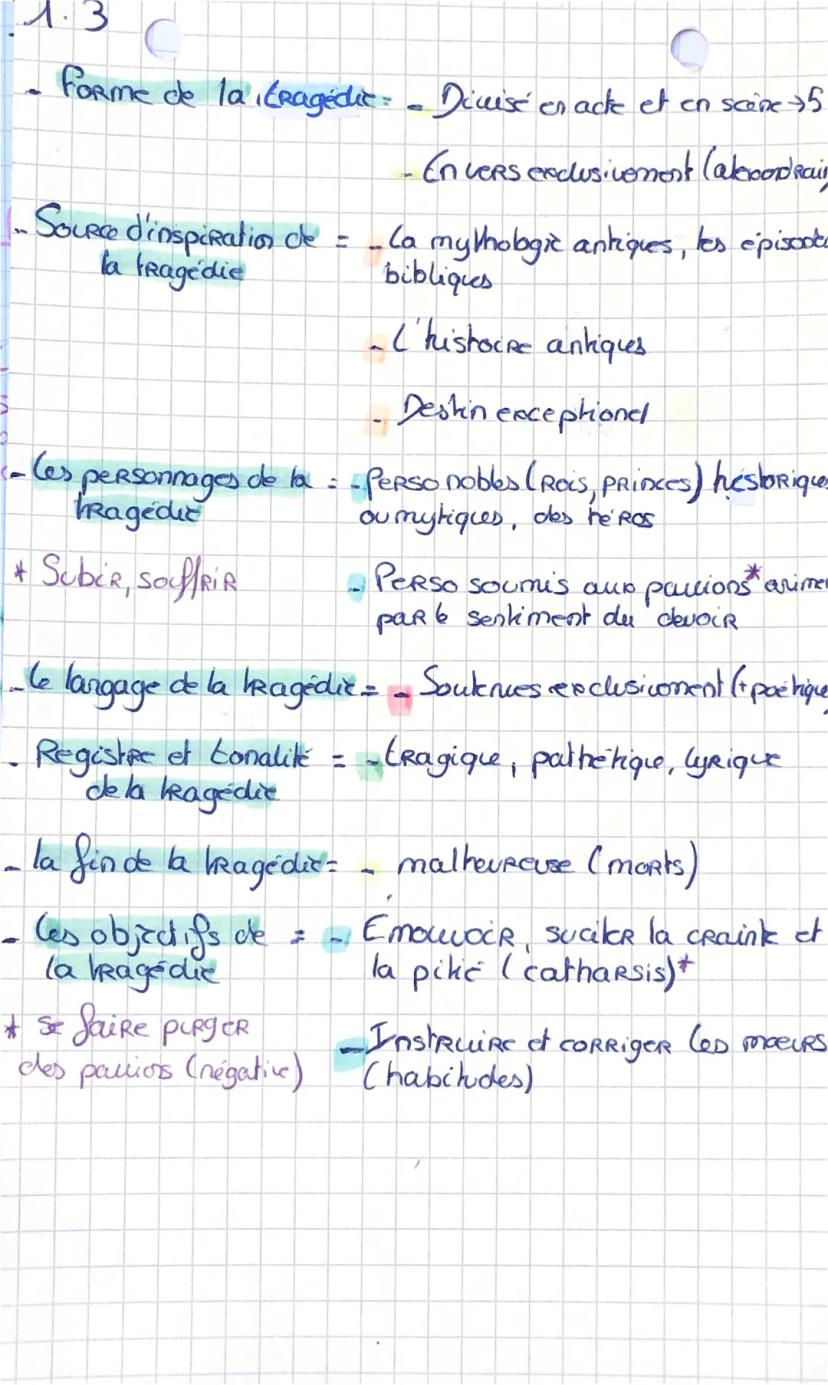 1.3
- Forme de la tragédie = - Divisé en acte et en scène → 5
- En vers exclusivement (alexandrain
- Source d'inspiration de = - La mythologie antiques, les épisode
la tragédie bibliques
- L'histoire antiques
- Destin exceptionel
- Les personnages de la = - Perso nobles (Rois, princes) historique
tragédie ou mytiques, des héros
* Subir, souffrir - Perso soumis aux passions* animer
par le sentiment du devoir
- Le langage de la tragédie = - Soutenues exclusivement (+ poétique
- Registre et tonalité = - tragique, pathétique, lyrique
de la tragédie
- la fin de la tragédie = - malheureuse (morts)
- Les objectifs de = - Émouvoir, suciter la crainte et
la tragédie la pitié (catharsis)*
* se faire purger - Instruire et corriger les mœurs
des passions (négative) (habitudes)